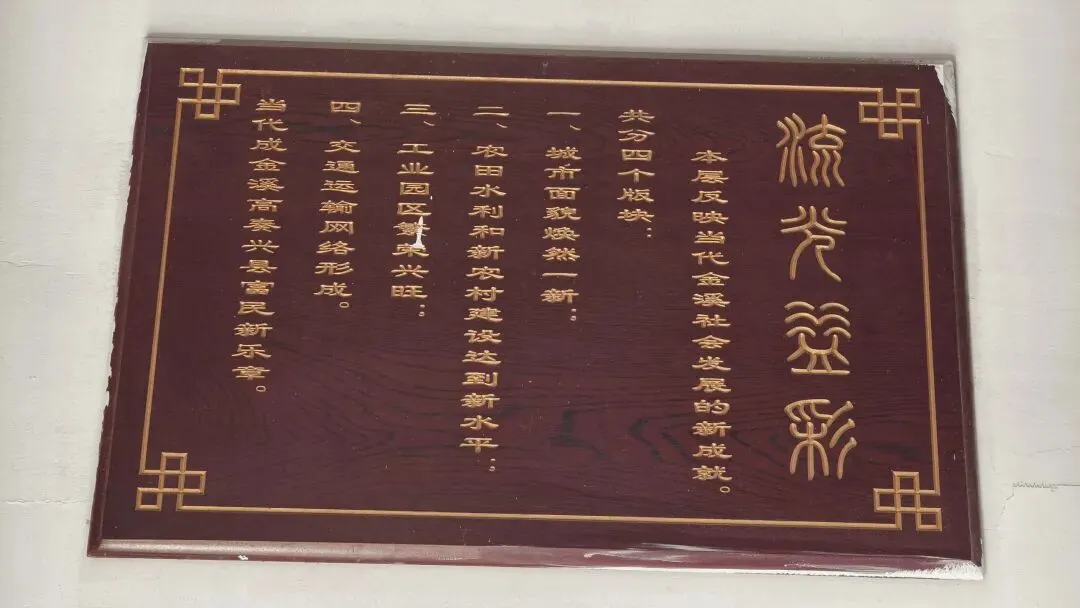 流光益彩
本层反映当代金溪社会发展的新成就。
共分四个版块：
一、城市面貌焕然一新；
二、农田水利和新农村建设达到新水平；
三、工业园区繁荣兴旺；
四、交通运输网络形成。
当代成金溪高奏兴县富民新乐章。